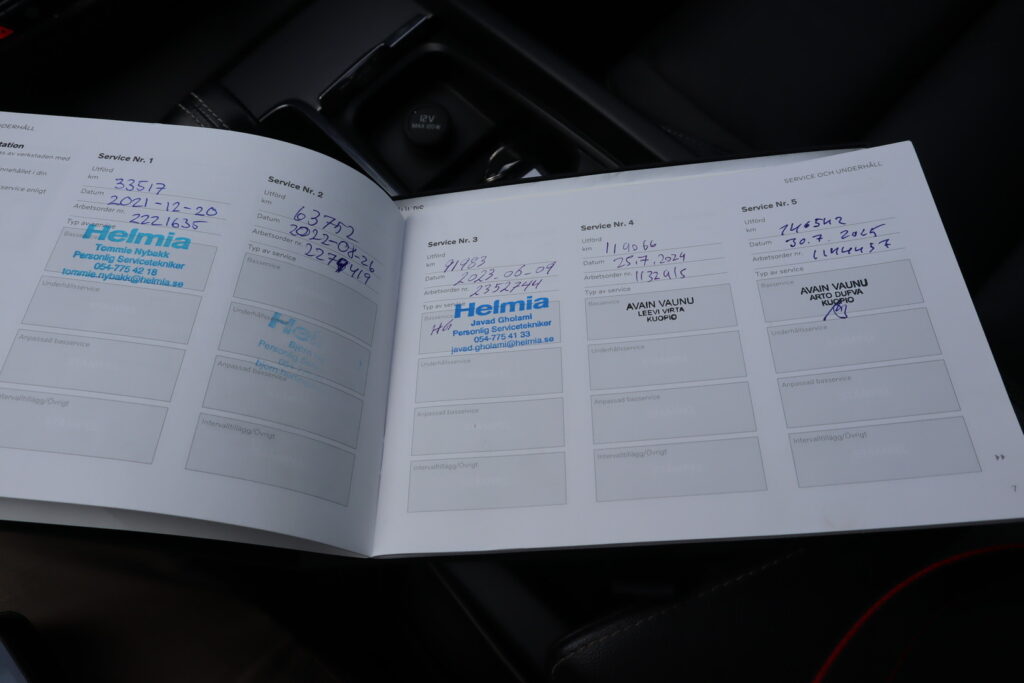 12V
MAX 120 W
NDERHÅLL
tation
as av verkstaden med
innehållet i din
service enligt
Service Nr. 1
Utförd
km 33517
Datum 2021-12-20
Arbetsorder nr. 2221635
Typ av
Helmia
Tommie Nybakk
Personlig Servicetekniker
054-775 42 18
tommie.nybakk@helmia.se
Underhållsservice
Anpassad basservice
Intervalltillägg/Övrigt
Service Nr. 2
Utförd
km 63752
Datum 2022-08-26
Arbetsorder nr. 2279419
Typ av service
Basservice
Underhållsservice
Helmia
Personlig
Anpassad basservice
Intervalltillägg/Övrigt
Service Nr. 3
Utförd
km 91983
Datum 2023-06-09
Arbetsorder nr. 2352744
Typ av service
Helmia
Javad Gholami
Personlig Servicetekniker
054-775 41 33
javad.gholami@helmia.se
Underhållsservice
Anpassad basservice
Intervalltillägg/Övrigt
Service Nr. 4
Utförd
km 119066
Datum 25.7.2024
Arbetsorder nr. 1132915
Typ av service
Basservice
AVAIN VAUNU
LEEVI VIRTA
KUOPIO
Underhållsservice
Anpassad basservice
Intervalltillägg/Övrigt
SERVICE OCH UNDERHÅLL
Service Nr. 5
Utförd
km 146542
Datum 30.7.2025
Arbetsorder nr.
Typ av service
Basservice
AVAIN VAUNU
ARTO DUFVA
KUOPIO
Underhållsservice
Anpassad basservice
Intervalltillägg/Övrigt
7